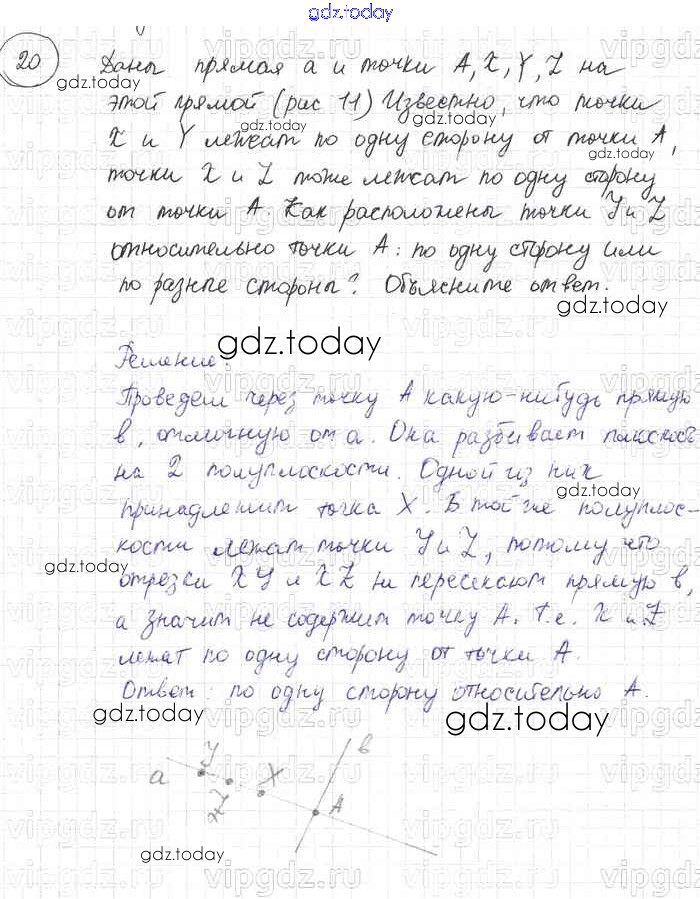 gdz.today
20 Даны прямая а и точки A, X, Y, Z на
этой прямой (рис 11) Известно, что точки
X и Y лежат по одну сторону от точки A,
точки X и Z тоже лежат по одну сторону
от точки A. Как расположены точки Y и Z
относительно точки A: по одну сторону или
по разные стороны? Объясните ответ.
gdz.today
Решение:
Проведем через точку A какую-нибудь прямую
в, отличную от а. Она разбивает плоскость
на 2 полуплоскости. Одной из них
принадлежит точка X. В той же полуплос-
кости лежат точки Y и Z, потому что
отрезки XY и XZ не пересекают прямую в,
а значит не содержит точку A. Т.е. X и Z
лежат по одну сторону от точки A.
Ответ: по одну сторону относительно A.
gdz.today
gdz.today
в
Y
а
X
Z
A
gdz.today